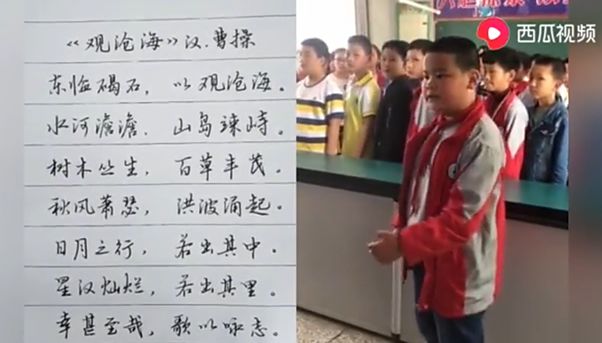 《观沧海》汉.曹操
东临碣石，以观沧海。
水河澹澹，山岛竦峙。
树木丛生，百草丰茂。
秋风萧瑟，洪波涌起。
日月之行，若出其中。
星汉灿烂，若出其里。
幸甚至哉，歌以咏志。
西瓜视频